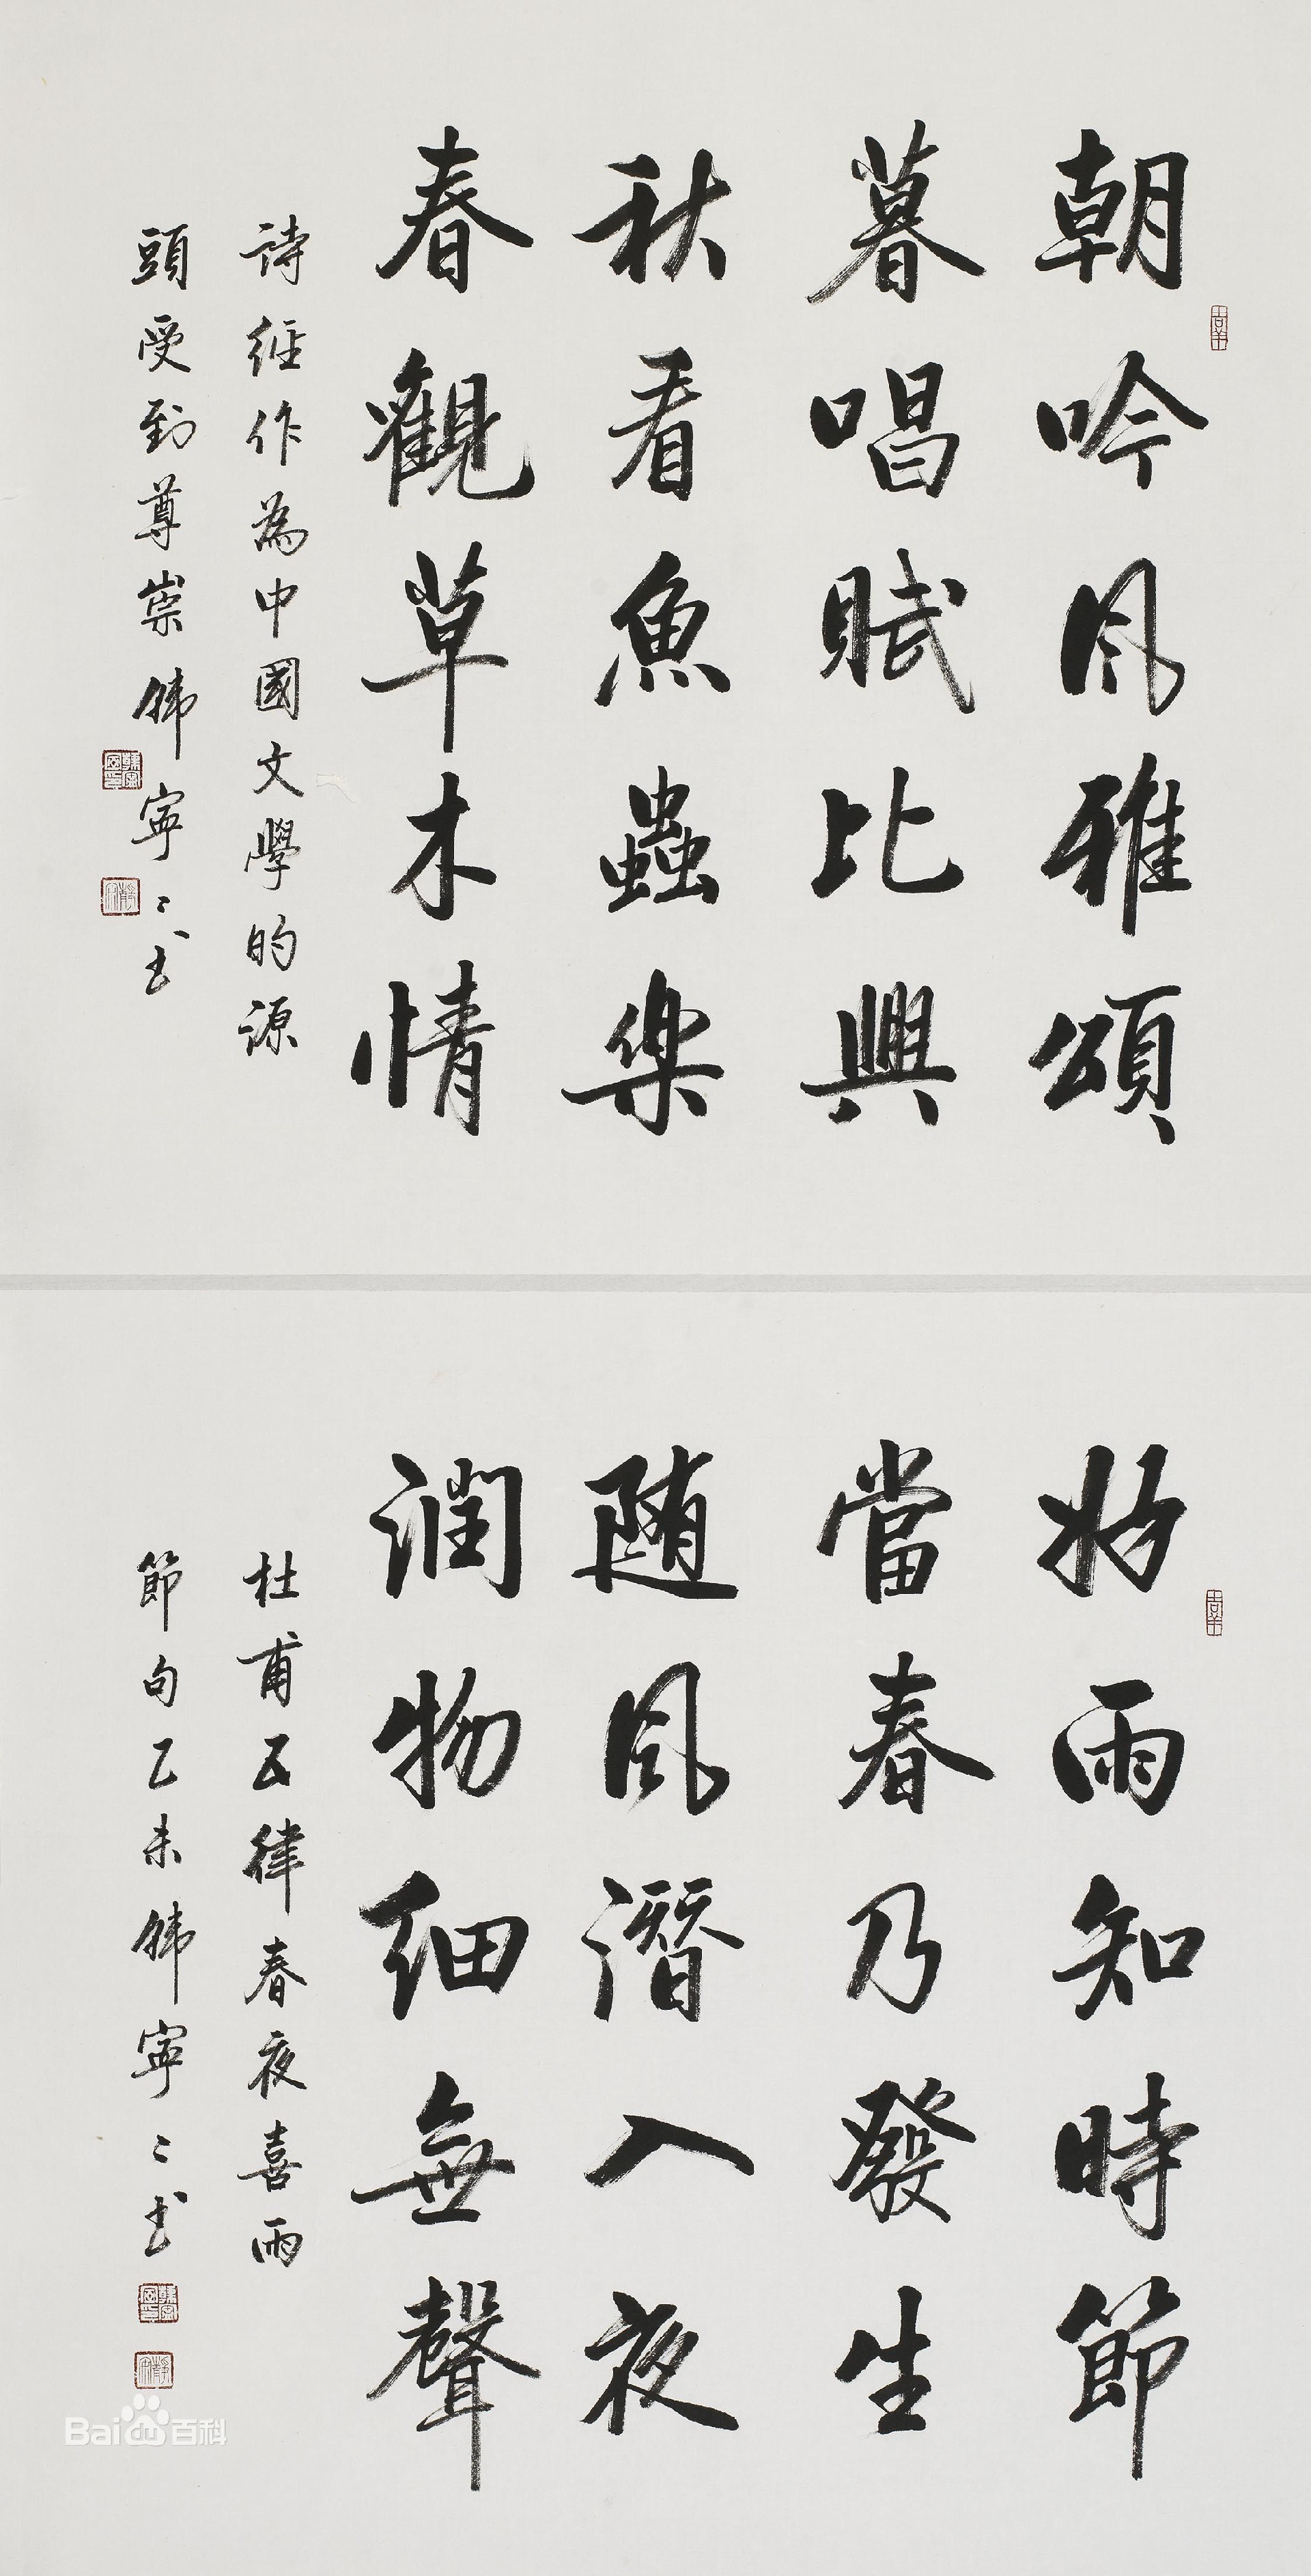 朝吟风雅頌
暮唱賦比興
秋看魚蟲樂
春觀草木情
詩經作為中國文學的源
頭受到尊崇韩寧寧书
好雨知時節
當春乃發生
随风潛入夜
潤物细無聲
杜甫五律春夜喜雨
節句乙未韩寧寧书
Bai百科